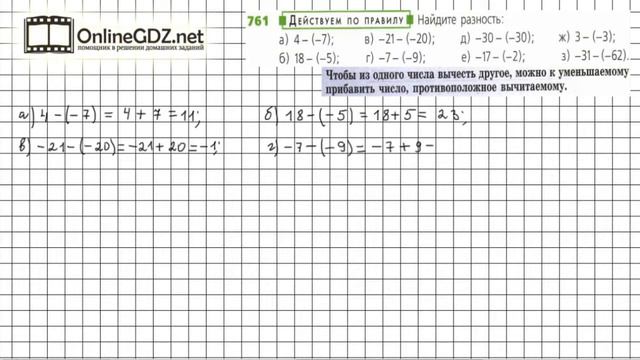 OnlineGDZ.net
помощник в решении домашних заданий
761 ДЕЙСТВУЕМ ПО ПРАВИЛУ Найдите разность:
а) 4 – (–7); в) –21 – (–20); д) –30 – (–30); ж) 3 – (–3);
б) 18 – (–5); г) –7 – (–9); е) –17 – (–2); з) –31 – (–62).
Чтобы из одного числа вычесть другое, можно к уменьшаемому
прибавить число, противоположное вычитаемому.
а) 4 – (–7) = 4 + 7 = 11; б) 18 – (–5) = 18 + 5 = 23;
в) –21 – (–20) = –21 + 20 = –1; г) –7 – (–9) = –7 + 9 –